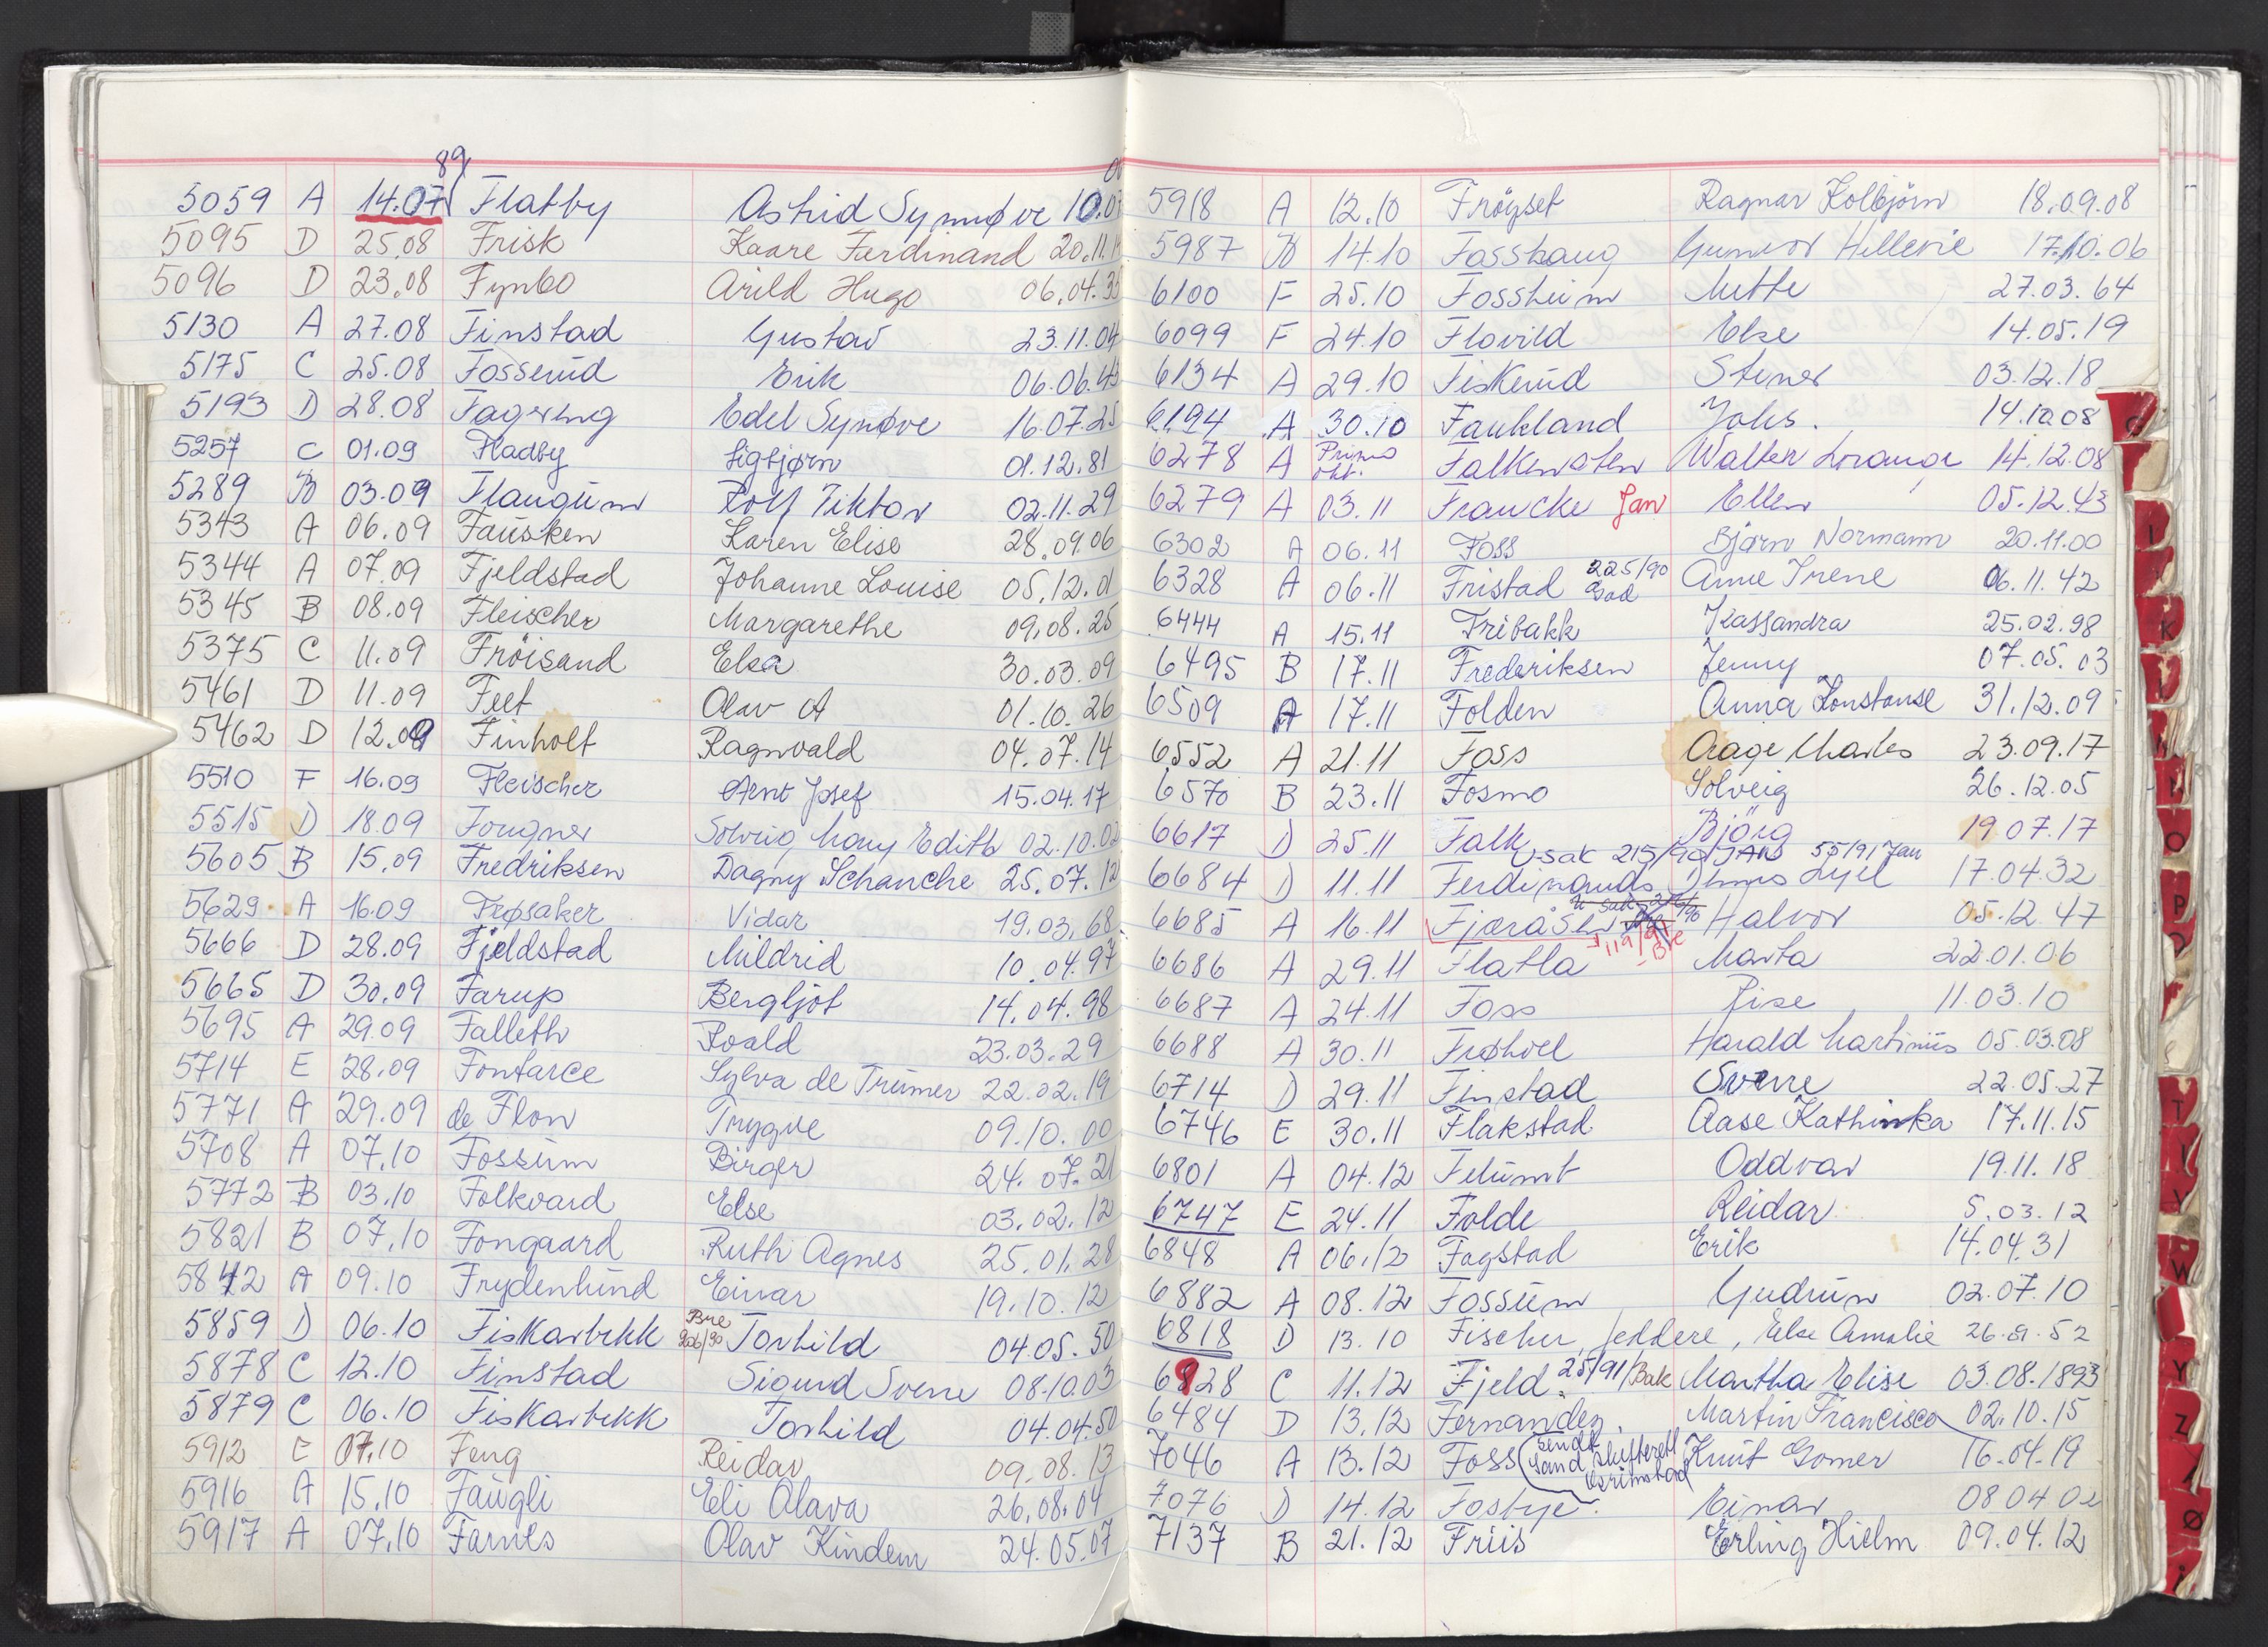 89
5059 A 14.07 Flatby Astrid Synnøve 10.07
5095 D 25.08 Frisk Kaare Ferdinand 20.11.
5096 D 23.08 Fynbo Arild Hugo 06.04.
5130 A 27.08 Finstad Gustav 23.11.04
5175 C 25.08 Fosserud Erik 06.06.43
5193 D 28.08 Fagereng Edel Synøve 16.07.25
5257 C 01.09 Fladby Sigbjørn 01.12.81
5289 B 03.09 Flaugum Rolf Viktor 02.11.29
5343 A 06.09 Fausken Karen Elise 28.09.06
5344 A 07.09 Fjeldstad Johanne Louise 05.12.01
5345 B 08.09 Fleischer Margarethe 09.08.25
5375 C 11.09 Frøisand Elsa 30.03.09
5461 D 11.09 Feet Olav A 01.10.26
5462 D 12.09 Finholt Ragnvald 04.07.14
5510 F 16.09 Fleischer Arnt Josef 15.04.17
5515 D 18.09 Fougner Solveig Mary Edith 02.10.02
5605 B 15.09 Fredriksen Dagny Schanche 25.07.12
5629 A 16.09 Frøsaker Vidar 19.03.68
5666 D 28.09 Fjeldstad Mildrid 10.04.97
5665 D 30.09 Farup Bergljot 14.04.98
5695 A 29.09 Falleth Roald 23.03.29
5714 E 28.09 Fontarce Sylva de Trumer 22.02.19
5771 A 29.09 de Flon Trygve 09.10.00
5708 A 07.10 Fossum Birger 24.07.21
5772 B 03.10 Folkvard Else 03.02.12
5821 B 07.10 Fongaard Ruth Agnes 25.01.28
5842 A 09.10 Frydenlund Einar 19.10.12
5859 D 06.10 Fiskarbekk Bre 206/90 Torhild 04.05.50
5878 C 12.10 Finstad Sigurd Sverre 08.10.03
5879 C 06.10 Fiskarbekk Torhild 04.04.50
5912 E 07.10 Feng Reidar 09.08.13
5916 A 15.10 Faugli Eli Olava 26.08.04
5917 A 07.10 Farnes Olav Kindem 24.05.07
5918 A 12.10 Frøyset Ragnar Kolbjörn 18.09.08
5987 B 14.10 Fosshaug Gunvor Hellerie 17.10.06
6100 F 25.10 Fossheim Mette 27.03.64
6099 F 24.10 Flovild Else 14.05.19
6134 A 29.10 Fiskerud Stener 03.12.18
6194 A 30.10 Faukland Johs. 14.10.08
6278 A Primo okt. Falkensten Walter Lorange 14.12.08
6279 A 03.11 Francke Jan Ellen 05.12.43
6302 A 06.11 Foss Bjørn Normann 20.11.00
6328 A 06.11 Fristad 225/90 Anne Irene 06.11.42
6444 A 15.11 Fribakk Kassandra 25.02.98
6495 B 17.11 Frederiksen Jenny 07.05.03
6509 A 17.11 Folden Anna Konstanse 31.12.09
6552 A 21.11 Foss Aage Charles 23.09.17
6570 B 23.11 Fosmo Solveig 26.12.05
6617 D 25.11 Falk Björg 19.07.17
sak 215/90/JAN 55/91 Jan
6684 D 11.11 Ferdinands 17.04.32
6685 A 16.11 Halvor 05.12.47
119/91 Bre
6686 A 29.11 Flatla Marta 22.01.06
6687 A 24.11 Foss Lise 11.03.10
6688 A 30.11 Frøhvel Harald Martinius 05.03.08
6714 D 29.11 Finstad Sverre 22.05.27
6746 E 30.11 Flakstad Aase Kathinka 17.11.15
6801 A 04.12 Felumb Oddvar 19.11.18
6747 E 24.11 Folde Reidar 5.03.12
6848 A 06.12 Fagstad Erik 14.04.31
6882 A 08.12 Fossum Gudrun 02.07.10
6818 D 13.10 Fischer, Jeddere, Else Amalie 26.01.52
6928 C 11.12 Fjeld 25/91/Bak Martha Elise 03.08.1893
6484 D 13.12 Fernandez Martin Francisco 02.10.15
7046 A 13.12 Foss Knut Gomer 16.04.19
Sand Skifterett
7076 D 14.12 Fosbye Einar 08 04 02
7137 B 21.12 Friis Erling Hielm 09.04.12
K
O
P
T
W
Y
Z
Ø